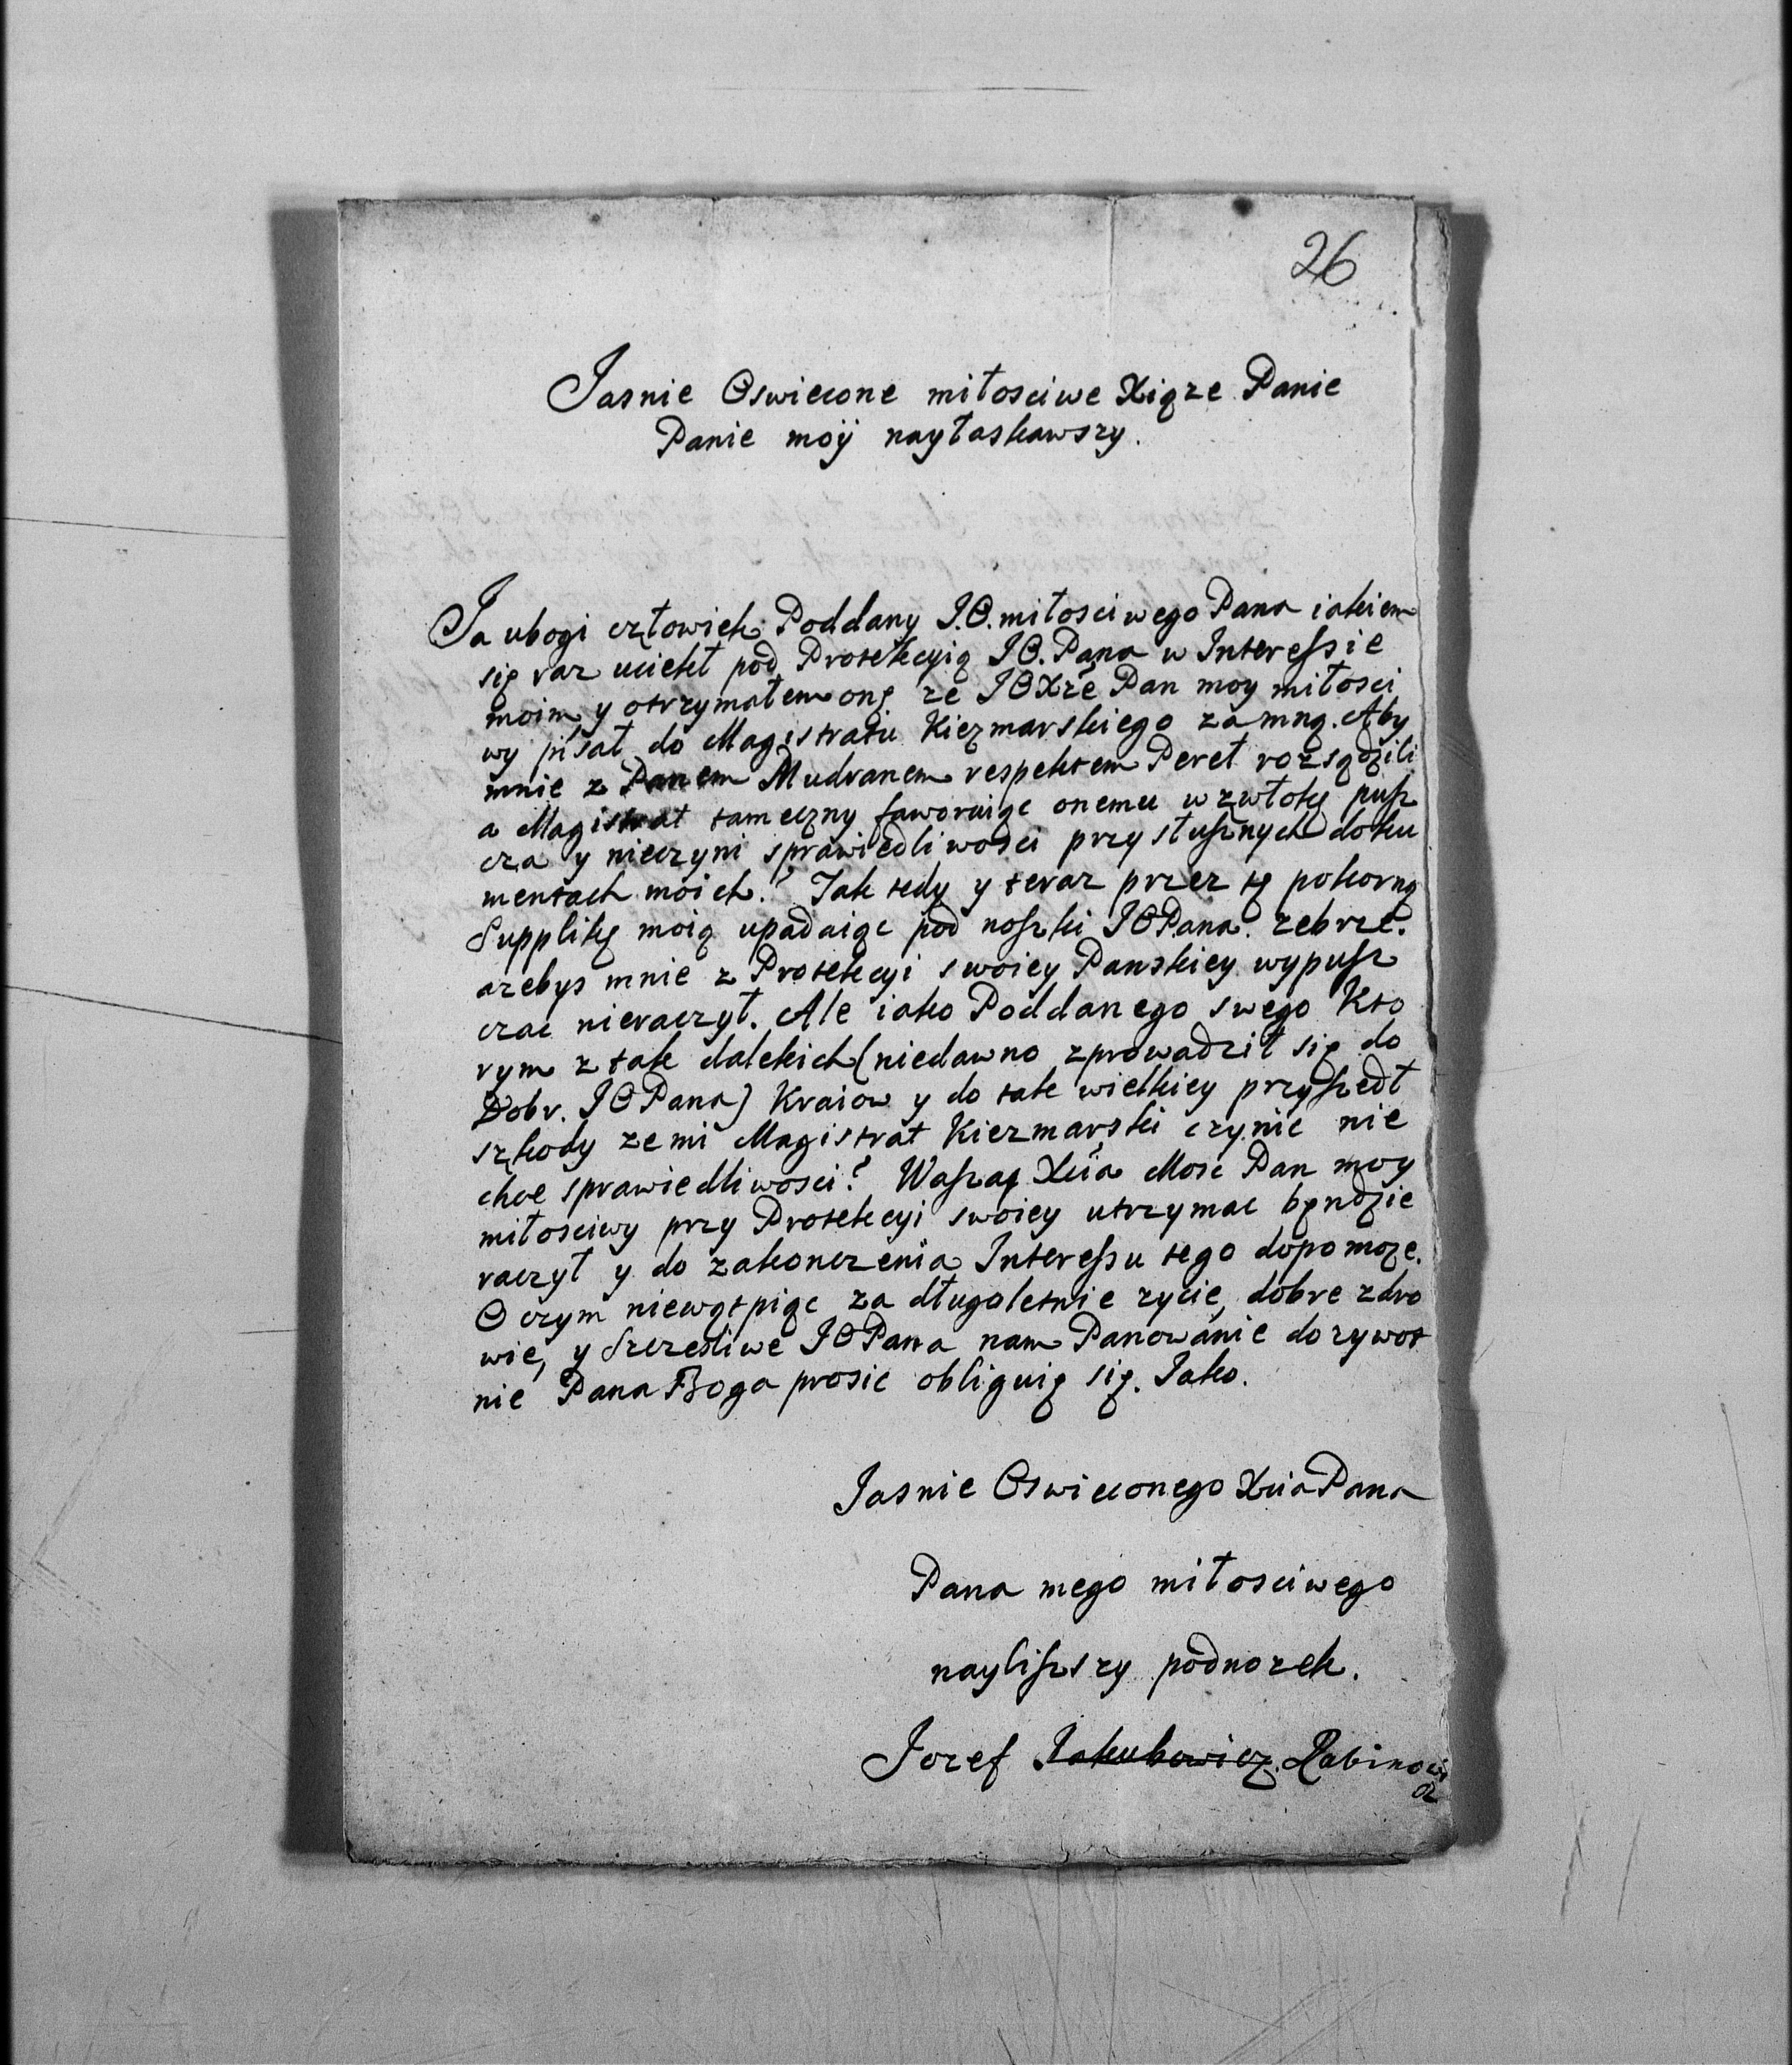 26
Jasnie Oswiecone miłosciwe Xiąze Panie
Panie moÿ nayłaskawszy.
Ja ubogi człowiek Poddany J.O. miłosciwego Pana iakiem
się raz uciekł pod Protekcyią JO. Pana w Interessie
moim y otrzymałem onę ze JOXże Pan moy miłosci
wy pisał do Magistratu Kiezmarskiego za mną. Aby
mnie z Panem Mudranem respektem Pereł rozsądzili
a Magistrat tameczny faworuiąc onemu w zwłokę pusz
cza y nieczyni sprawiedliwosci przy słusznych doku
mentach moich? Jak tedy y teraz przez tę pokorną
Supplikę moią upadaiąc pod noszki JOPana. zebrze.
azebys mnie z Protekcyi swoiey Panskiey wypusz
czac nieraczył. Ale iako Poddanego swego Kto
rym z tak dalekich (niedawno zprowadził się do
Dobr. JOPana) Kraiow y do tak wielkiey przyszedł
szkody ze mi Magistrat Kiezmarski czynic nie
chce sprawiedliwosci? Wasza Xcia Mosc Pan moy
miłosciwy przy Protekcyi swoiey utrzymac będzie
raczył y do zakonczenia Interessu tego dopomoze.
O czym niewątpiąc za długoletnie zycie, dobre zdro
wie, y Szczesliwe JOPana nam Panowanie dozywot
nie Pana Boga prosic obliguię się. Jako.
Jasnie Oswieconego Xcia Pana
Pana mego miłosciwego
nayliszszy podnozek.
Jozef Jakubowicz. Rabinowi
cz